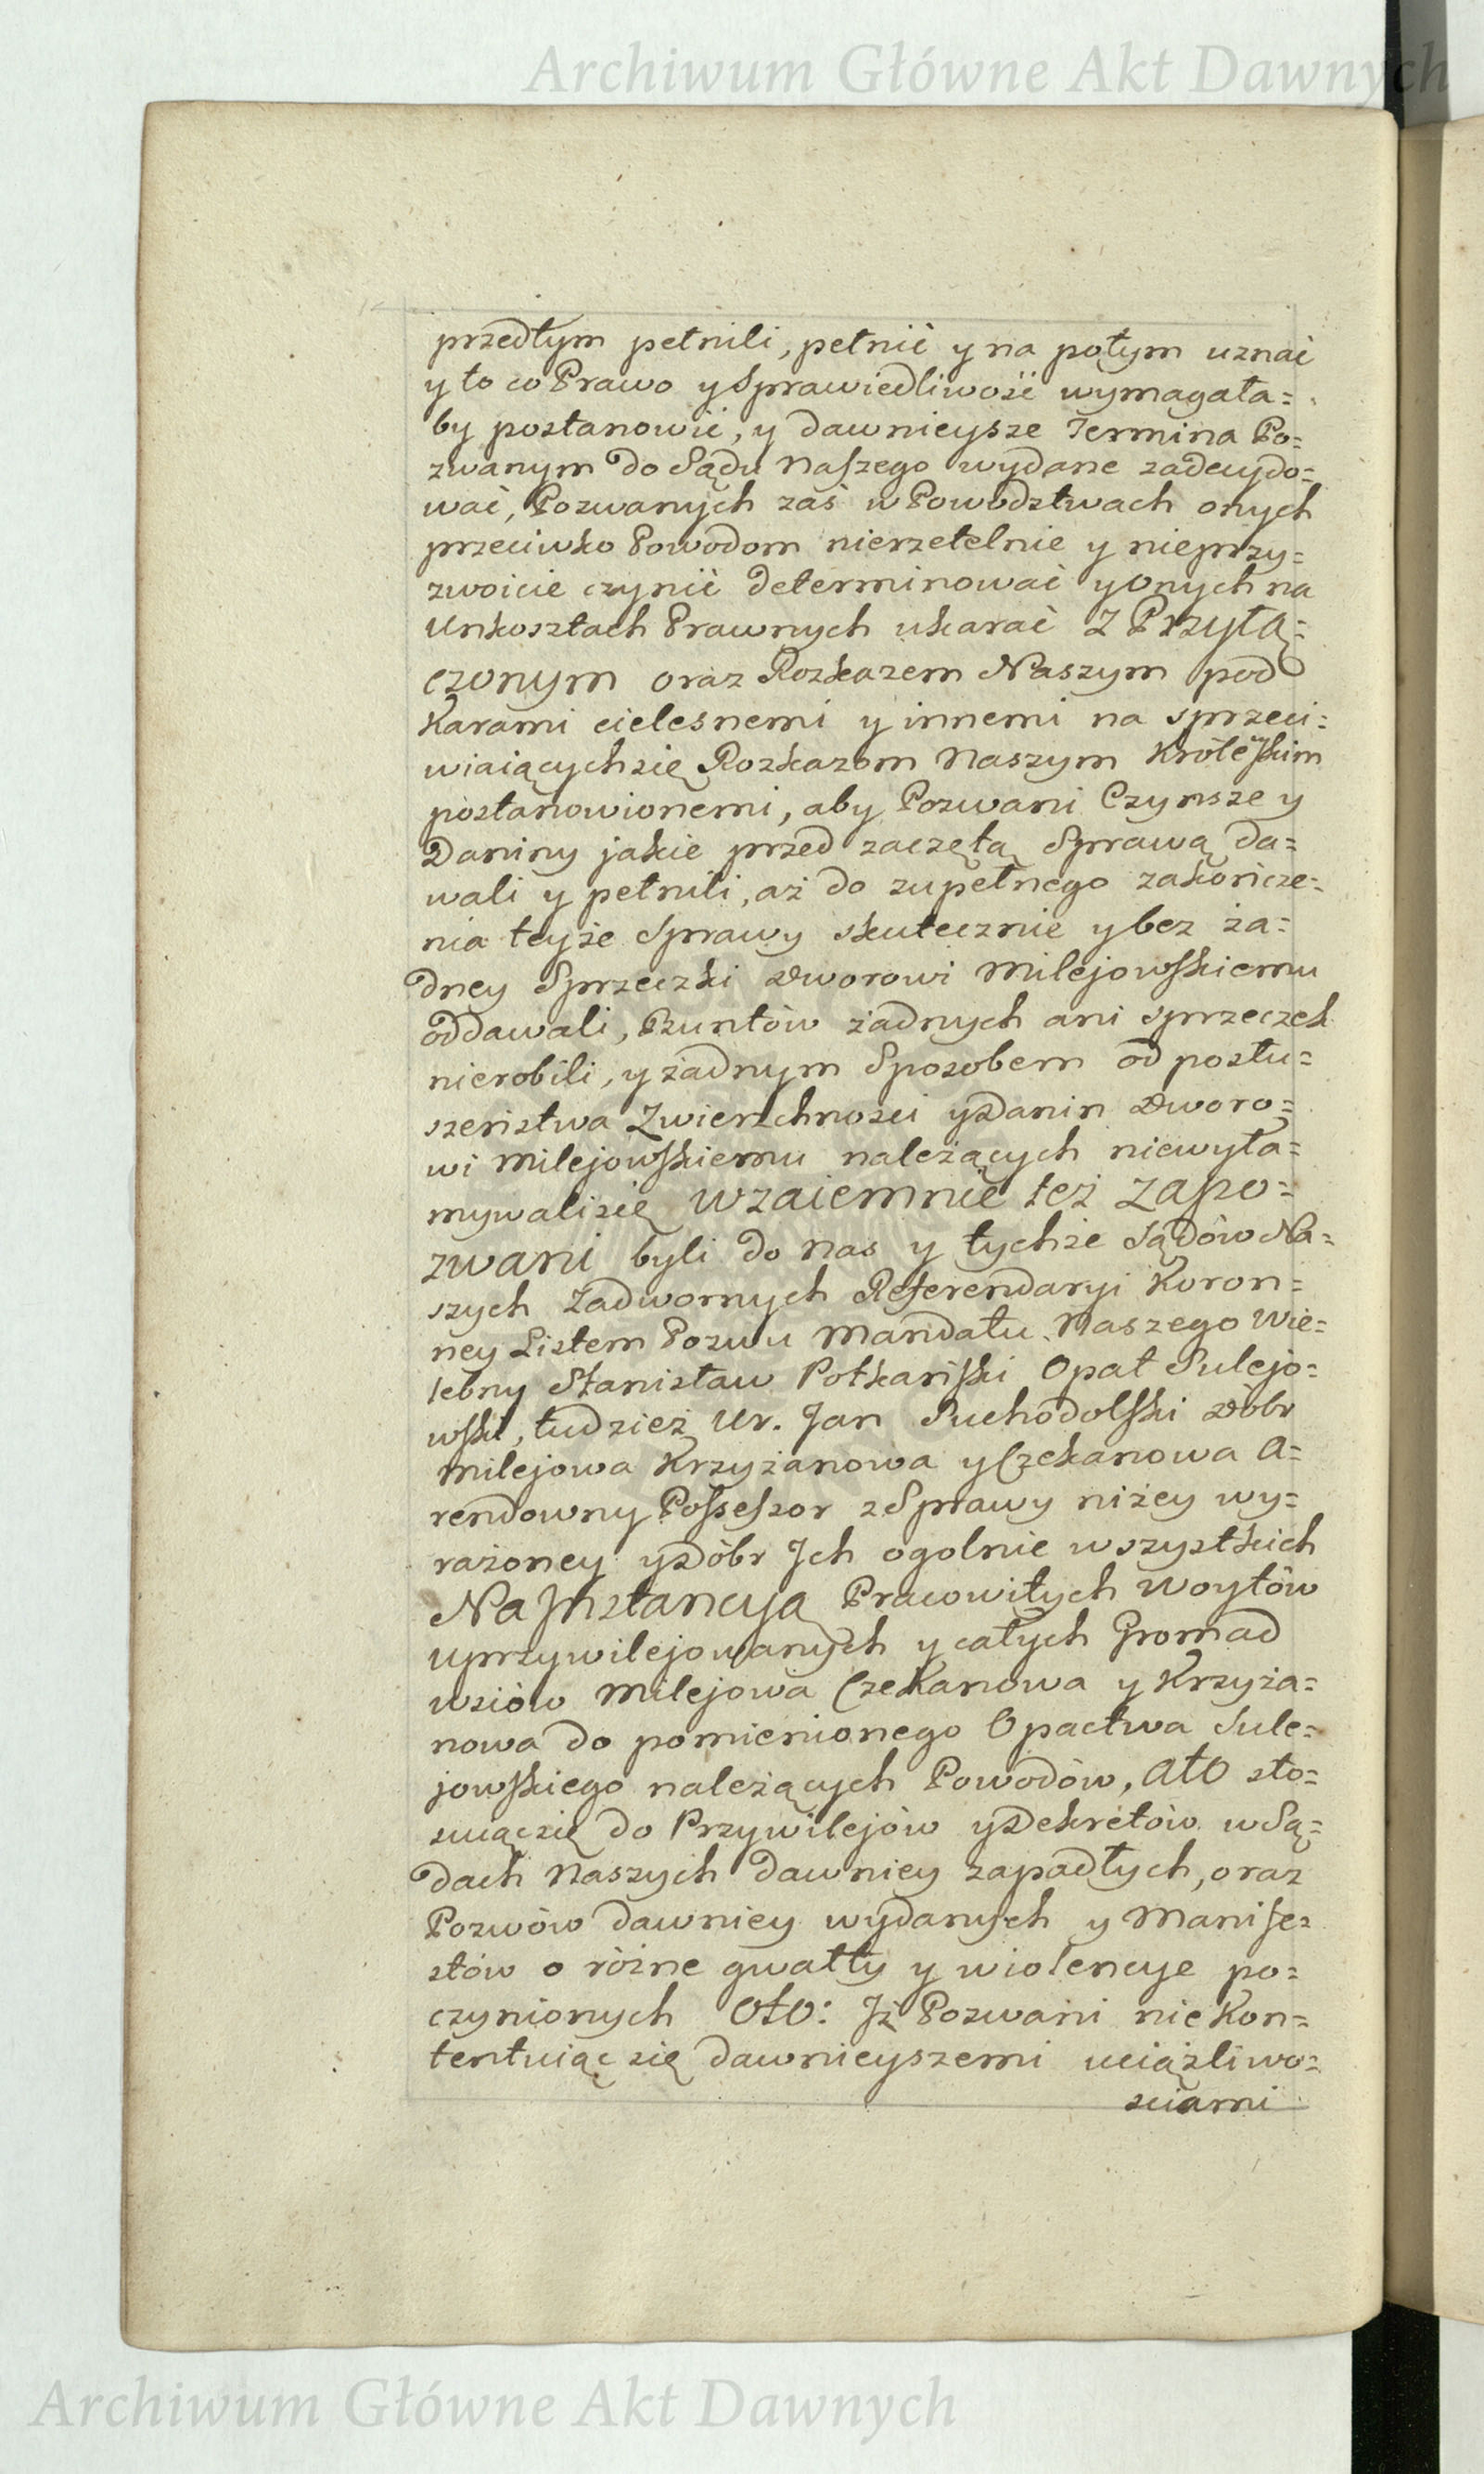 Archiwum Główne Akt Dawnych
przedtym pełnili, pełnić y na potym uznać
y to co Prawo y Sprawiedliwość wymagała=
by postanowić, y dawnieysze Termina Po=
zwanym do Sądu Naszego wydane zadecydo=
wać, Pozwanych zaś w Powodztwach onych
przeciwko Powodom nierzetelnie y nieprzy=
zwoicie czynić determinować y onych na
Unkosztach Prawnych ukarać Z Przyłą=
czonym oraz Rozkazem Naszym pod
Karami cielesnemi y innemi na sprzeci=
wiaiących się Rozkazom Naszym Królewskim
postanowionemi, aby Pozwani Czynsze y
Daniny jakie przed zaczętą Sprawą da=
wali y pełnili, aż do zupełnego zakończe=
nia teyże Sprawy skutecznie y bez ża=
dney Sprzeczki Dworowi Milejowskiemu
oddawali, Buntów żadnych ani sprzeczek
nierobili, y żadnym Sposobem od posłu=
szeństwa Zwierzchności y Danin Dworo=
wi Milejowskiemu należących niewyła=
mywali się Wzaiemnie też Zapo=
zwani byli do Nas y tychże Sądów Na=
szych Zadwornych Referendaryi Koron=
ney Listem Pozwu Mandatu Naszego Wie=
lebny Stanisław Potkański Opat Sulejo=
wski, tudzież Ur. Jan Suchodolski Dóbr
Milejowa Krzyżanowa y Czekanowa A=
rendowny Possessor z Sprawy niżey wy=
rażoney y Dóbr Jch ogolnie wszystkich
Na Jnstancyą Pracowitych Woytów
Uprzywilejowanych y całych Gromad
wsiów Milejowa Czekanowa y Krzyża=
nowa do pomienionego Opactwa Sule=
jowskiego należących Powodów, Ato sto=
suiąc się do Przywilejów y Dekretów w Są=
dach Naszych dawniey zapadłych, oraz
Pozwów dawniey wydanych y Manife=
stów o różne gwałty y wiolencye po=
czynionych Oto: Jż Pozwani nie Kon=
tentuiąc się dawnieyszemi uciążliwo=
sciami
Archiwum Główne Akt Dawnych